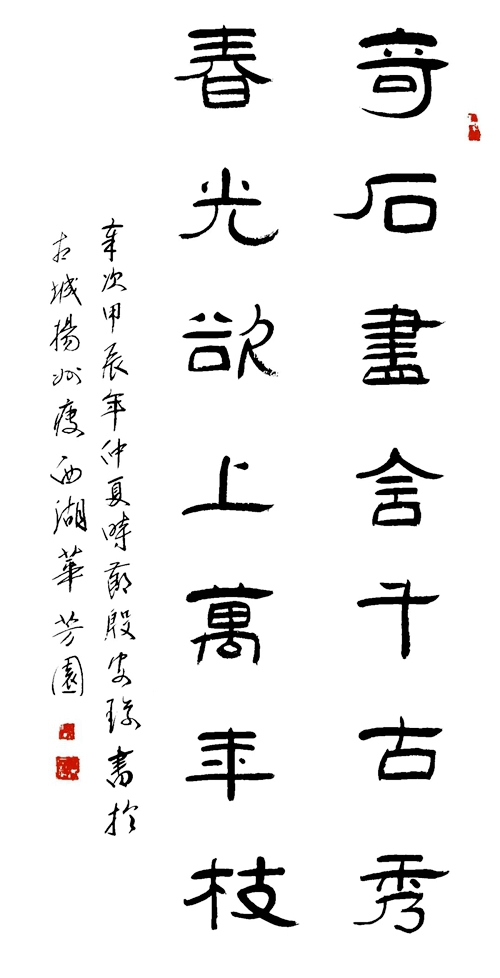 奇石盡含千古秀
春光欲上萬年枝
歲次甲辰年仲夏時節殷書於
古城揚州瘦西湖華芳園